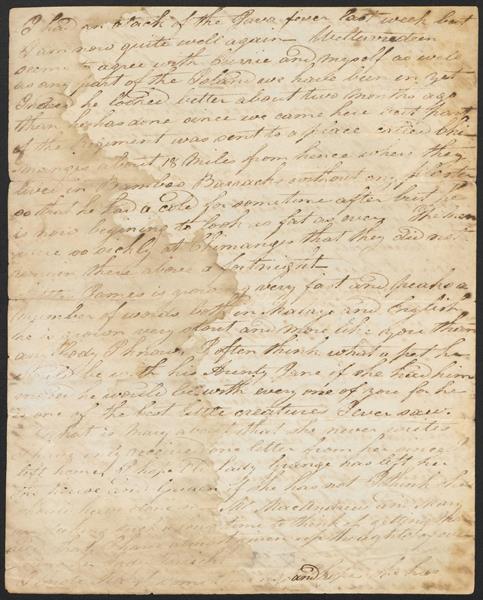 I had an attack of the Java fever last week but
I am now quite well again Weltervreden
seems to agree with Currie and myself as well
as any part of the Island we have been in yet
Indeed he looked better about two months ago
than he has done since we came here but part
of the Regiment was sent to a place called Chi
manges about 18 Miles from hence where they
lived in Bamboo Barracks without any plaster
so that he had a cold for sometime after but he
is now begining to look as fat as ever The men
were so sickly at Chimanges that they did not
remain there above a fortnight
little James is growing very fast and speaks a
number of words both in Malays and English
he is grown very stout and more like you than
any body I know I often think what a pet he
would be with his Aunty Jane if she had him
indeed he would be with every one of you for he
is one of the best little creatures I ever saw.
What is Mary about that she never writes
I have only received one letter from her since I
left home I hope Lady Grange has left her
the house in if she has not I think she
Mr MacAndrew and Mary
time to think of getting
thoughts of
and hope she has